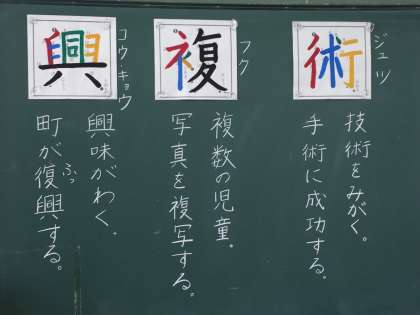 術
ジュツ
技術をみがく。
手術に成功する。
複
フク
複数の児童。
写真を複写する。
興
コウ・キョウ
興味がわく。
町が復興する。
ふっ